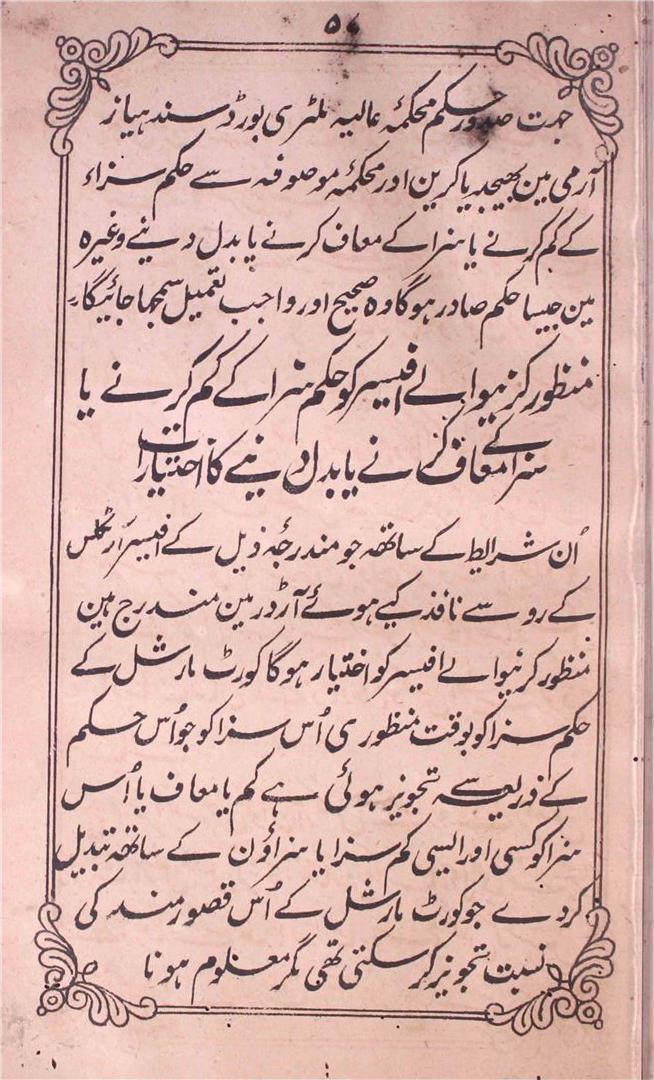 ۵۶
جہت صدور حکم محکمۂ عالیہ ملٹری بورڈ سندھیاز
آرمی مین بھیجدیا کرین اور محکمۂ موصوفہ سے حکم سزاء
کے کم کرنے یا سزا کے معاف کرنے یا بدل دینے وغیرہ
مین جیسا حکم صادر ہوگا وہ صحیح اور واجب تعمیل سمجھا جائیگا۔
منظور کرنیوالے افیسر کو حکم سزا کے کم کرنے یا
سزا کے معاف کرنے یا بدل دینے کا اختیارات
اُن شرایط کے ساتھہ جو مندرجۂ ذیل کے افیسر آرٹکلس
کے رو سے نافذ کیے ہوئے آرڈر مین مندرج ہین
منظور کرنیوالے افیسر کو اختیار ہوگا کورٹ مارشل کے
حکم سزا کو بوقت منظوری اُس سزا کو جو اُس حکم
کے ذریعہ سے تجویز ہوئی ہے کم یا معاف یا اُس
سزا کو کسی اور ایسی کم سزا یا سزاؤن کے ساتھہ تبدیل
کردے جو کورٹ مارشل کے اُس قصورمند کی
نسبت تجویز کرسکتی تھی مگر معلوم ہونا